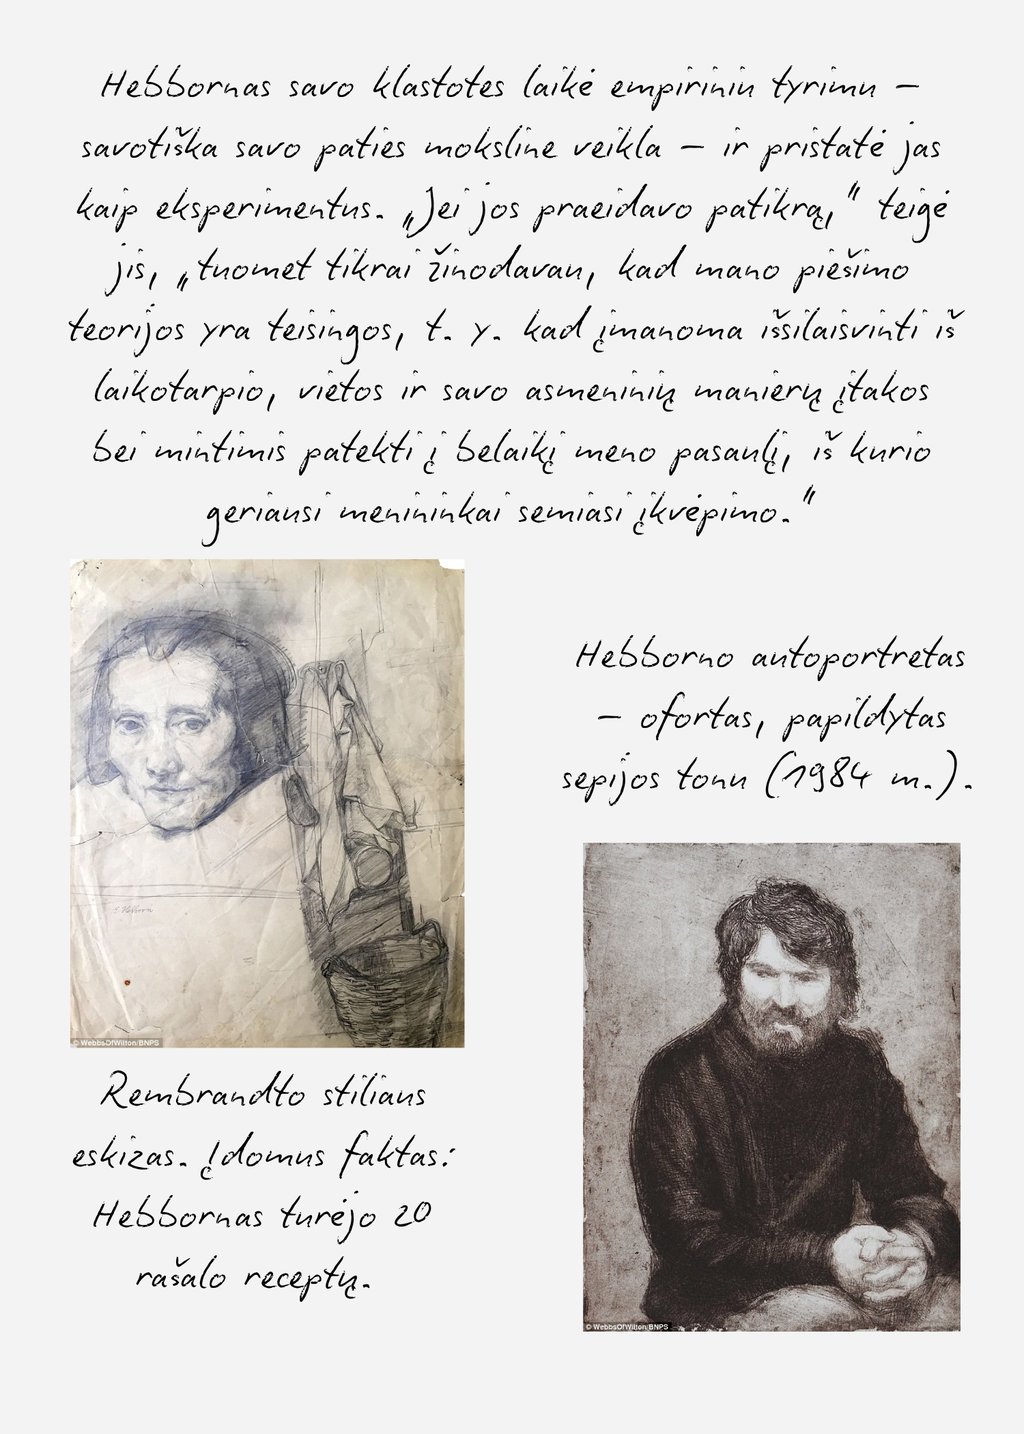 Hebbornas savo klastotes laikė empiriniu tyrimu –
savotiška savo paties moksline veikla – ir pristatė jas
kaip eksperimentus. „Jei jos praeidavo patikrą,“ teigė
jis, „tuomet tikrai žinodavau, kad mano piešimo
teorijos yra teisingos, t. y. kad įmanoma išsilaisvinti iš
laikotarpio, vietos ir savo asmeninių manierų įtakos
bei mintimis patekti į belaikį meno pasaulį, iš kurio
geriausi menininkai semiasi įkvėpimo.“
Hebborno autoportretas
– ofortas, papildytas
sepijos tonu (1984 m.).
© WebbsOfWilton/BNPS
Rembrandto stiliaus
eskizas. Įdomus faktas:
Hebbornas turėjo 20
rašalo receptų.
© WebbsOfWilton/BNPS